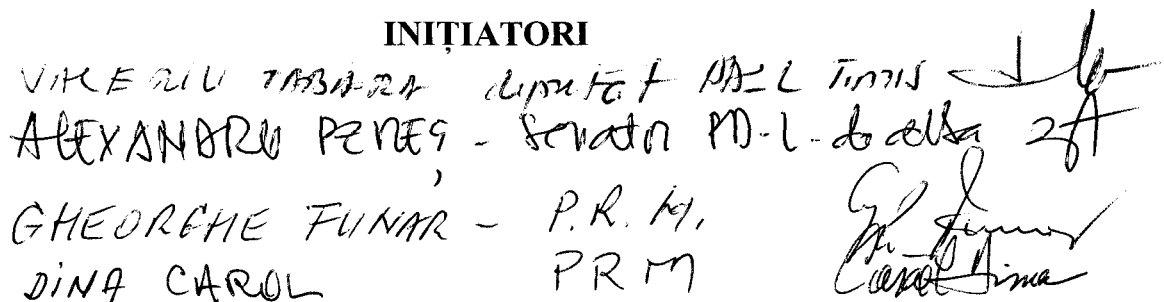 INIȚIATORI
VALERIU TABARA deputat PD-L Timis
ALEXANDRU PEREȘ - Senator PD-L -
GHEORGHE FUNAR - P.R.M.
DINA CAROL PRM